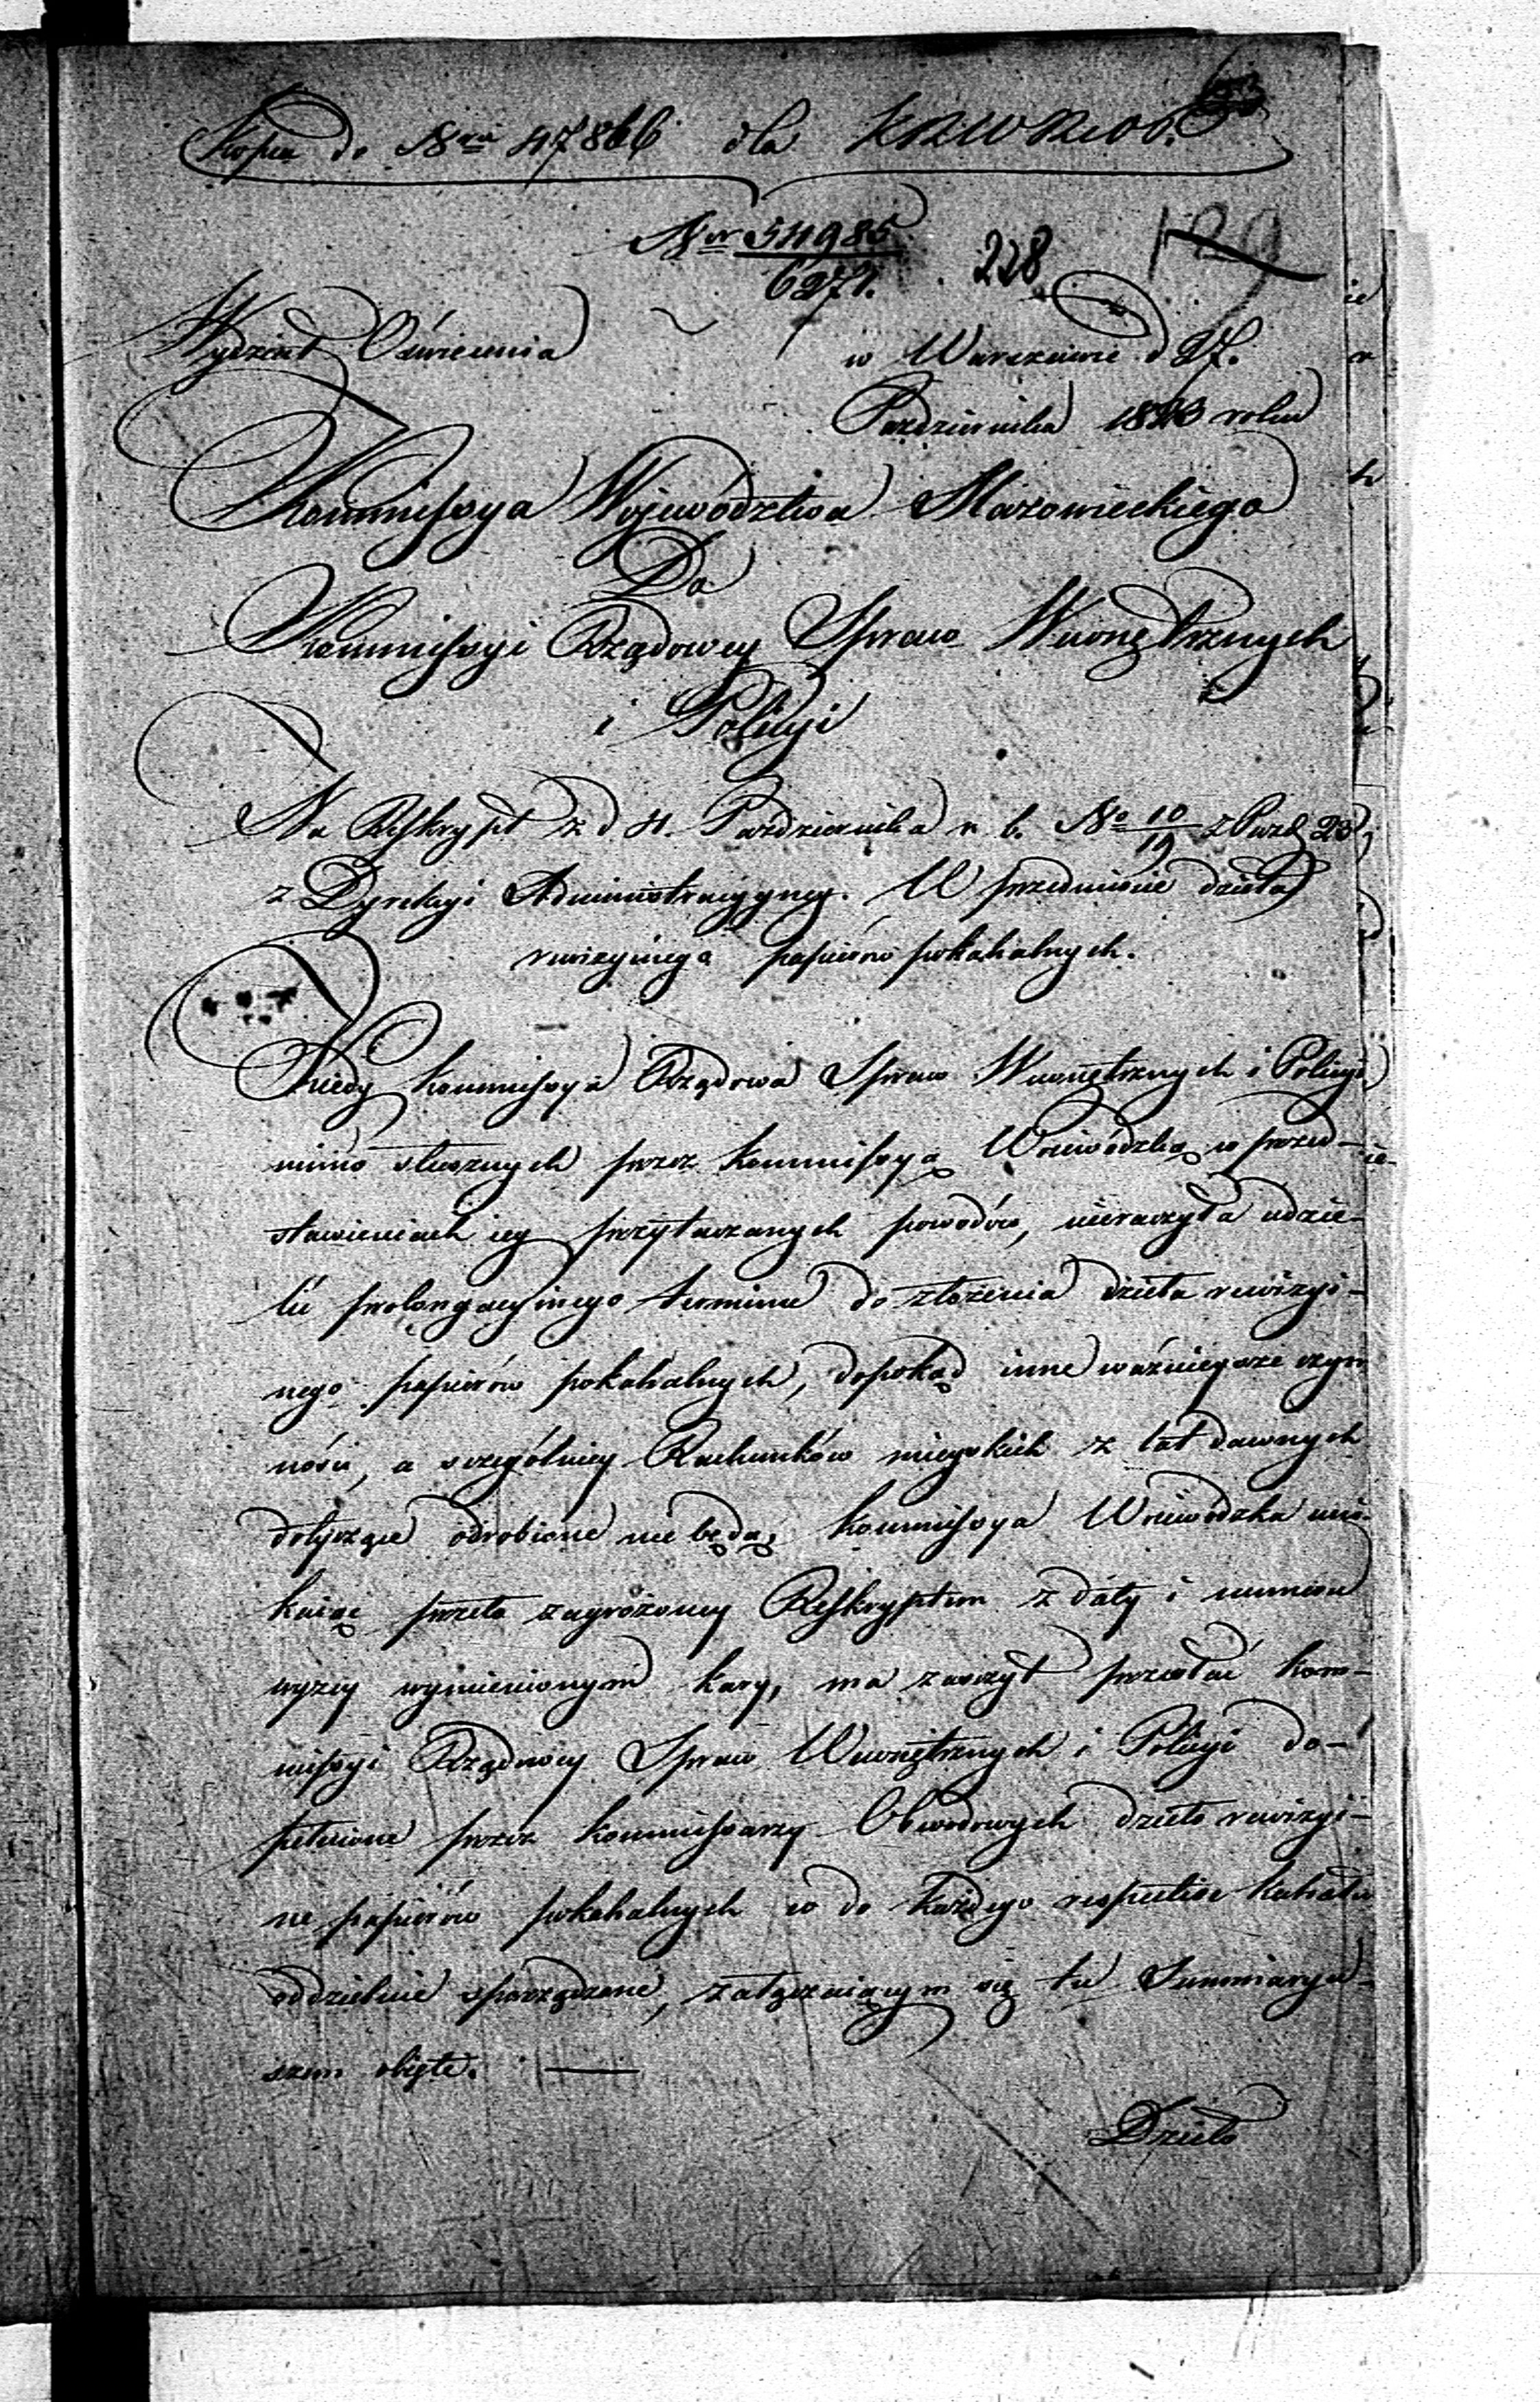 Kopia do Nru 47866 dla KRWRiOP.
Nr 54985
6271.
228
129
Wydział Oświecenia
w Warszawie d 27.
Października 1823 roku
Kommissya Województwa Mazowieckiego
Do
Kommissyi Rządowey Spraw Wewnętrznych
i Policyi
Na Reskrypt z d 4. Października r. b. No 10/19 z Paźd 23
z Dyrekcyi Administracyyney. W przedmiocie dzieła
rewizyinego papierów pokahalnych.
Kiedy Kommissya Rządowa Spraw Wewnętrznych i Policyi
mimo słusznych przez Kommissyą Woiewódzką w przed-
stawieniach iey przytaczanych powodów, nieraczyła udzie-
lić prolongacyinego terminu do złożenia dzieła rewizyi-
nego papierów pokahalnych, dopokąd inne ważnieysze czyn
ności, a szczególniey Rachunków mieyskich z lat dawnych
dotyczące odrobione nie będą; Kommissya Woiewódzka uni-
kaiąc przeto zagrożoney Reskryptem z daty i numeru
wyżey wymienionym kary, ma zaszczyt przesłać Kom-
missyi Rządowey Spraw Wewnętrznych i Policyi do-
pełnione przez Kommissarzy Obwodowych dzieło rewizyi-
ne papierów pokahalnych co do każdego respective Kahału
oddzielnie sporządzone, załączaiącym się tu Summaryu-
szem obięte.
Dzieło